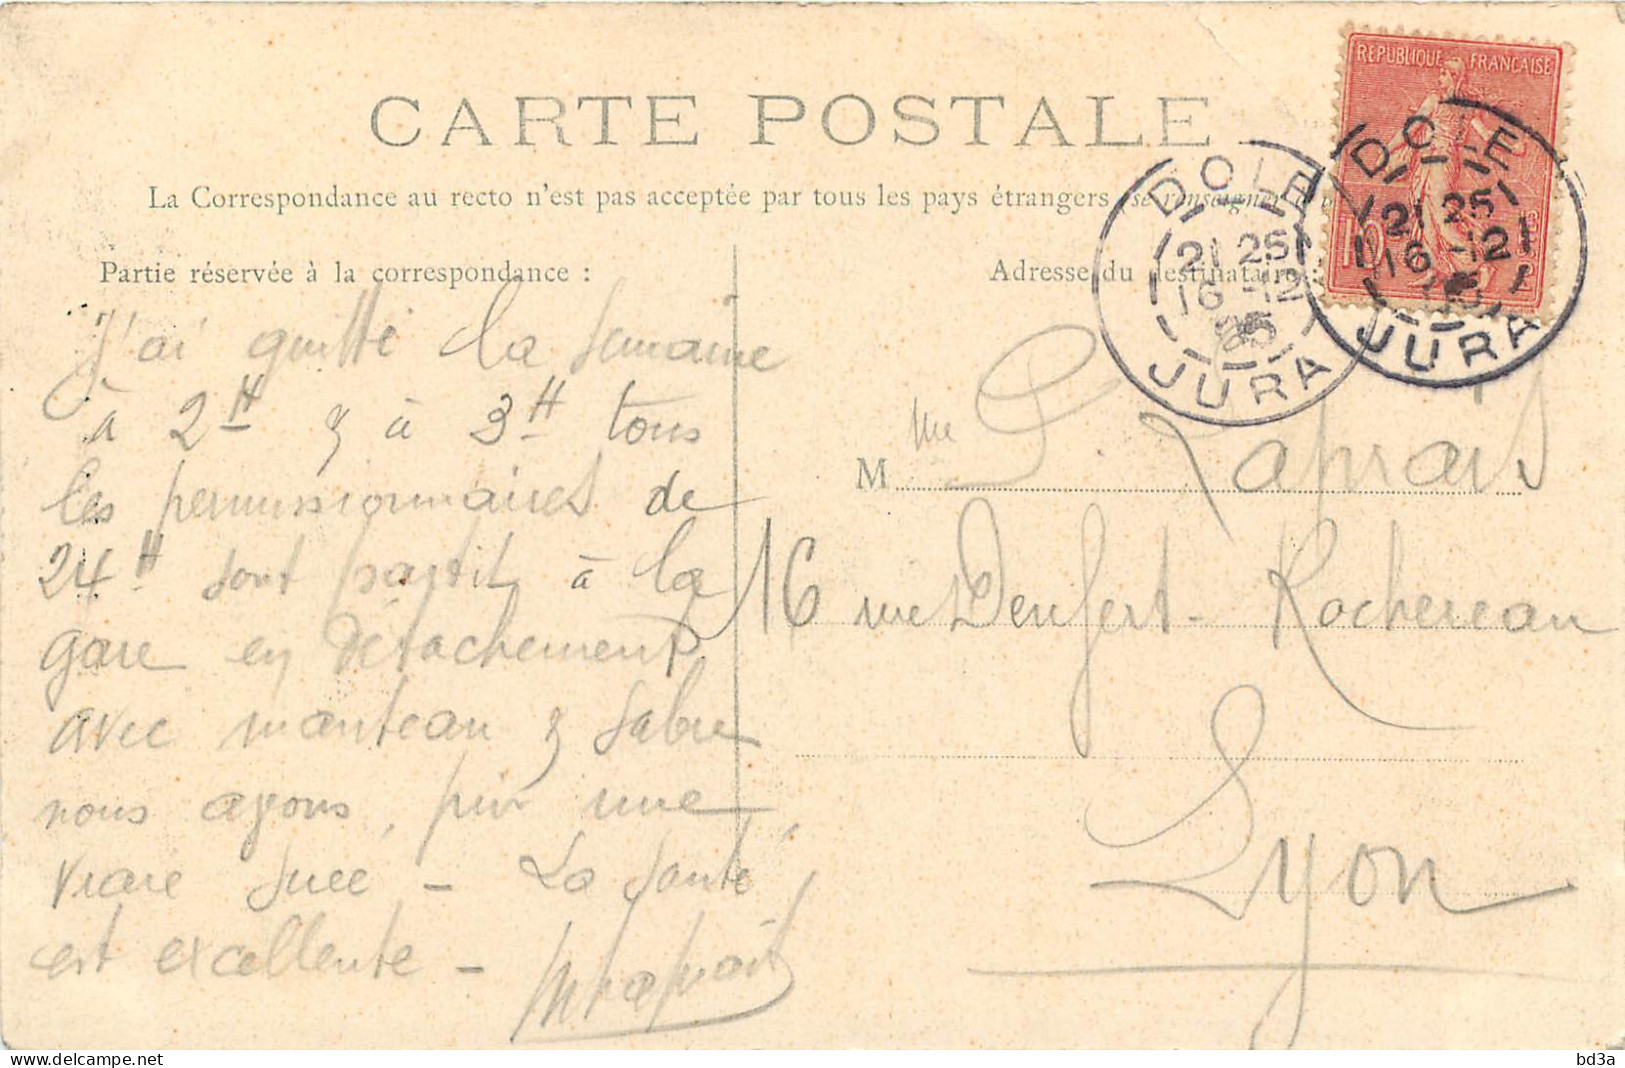 CARTE POSTALE
La Correspondance au recto n'est pas acceptée par tous les pays étrangers (se renseigner à
Partie réservée à la correspondance :
Adresse du destinataire :
REPUBLIQUE FRANÇAISE
10
DOLE
21 25
16 -12
05
JURA
DOLE
21 25
16 -12
JURA
J'ai quitté la semaine
à 2H & à 3H tous
les permissionnaires de
24H sont partis à la
gare en Détachement
avec manteau & sabre
nous avons, pris une
vraie sucé - La santé
est excellente -
M me
16 rue Denfert-Rochereau
Lyon
delcampe.net
bd3a